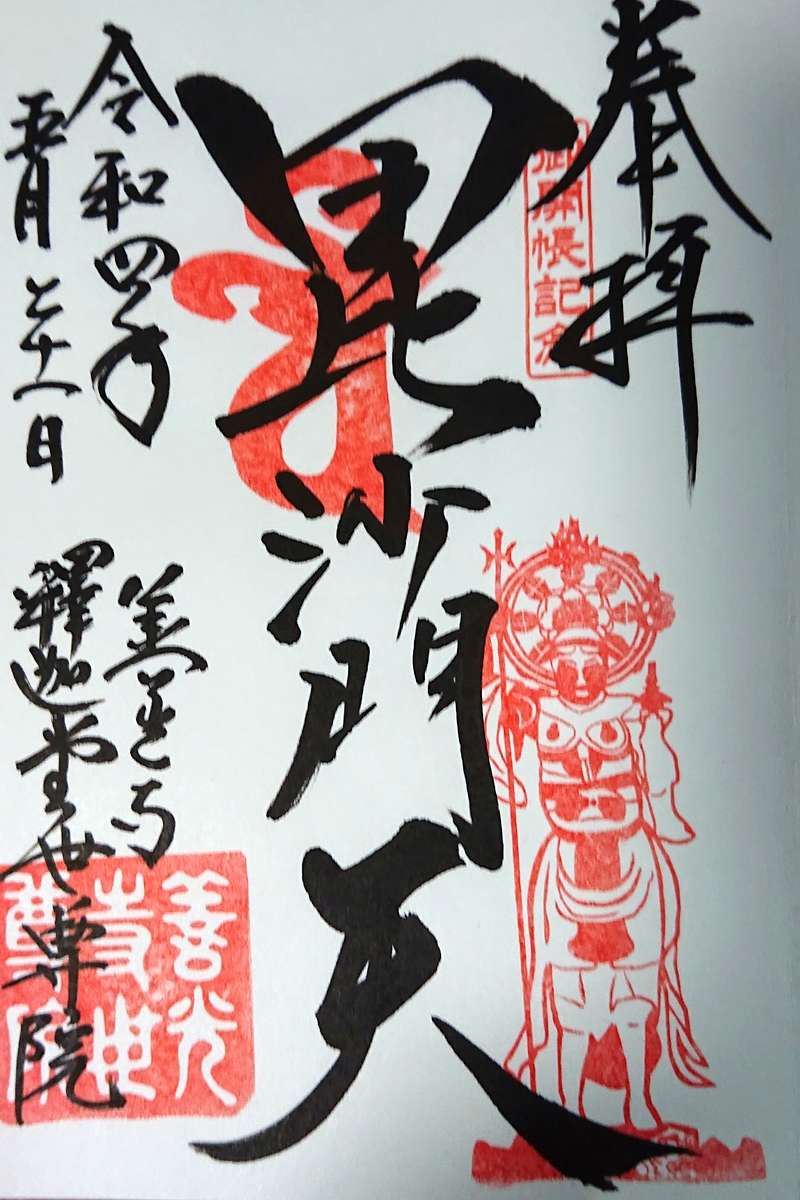 奉拝
御開帳記念
毘沙門天
令和四年
五月二十一日
善光寺
釋迦堂世尊院
善光
寺世
尊院